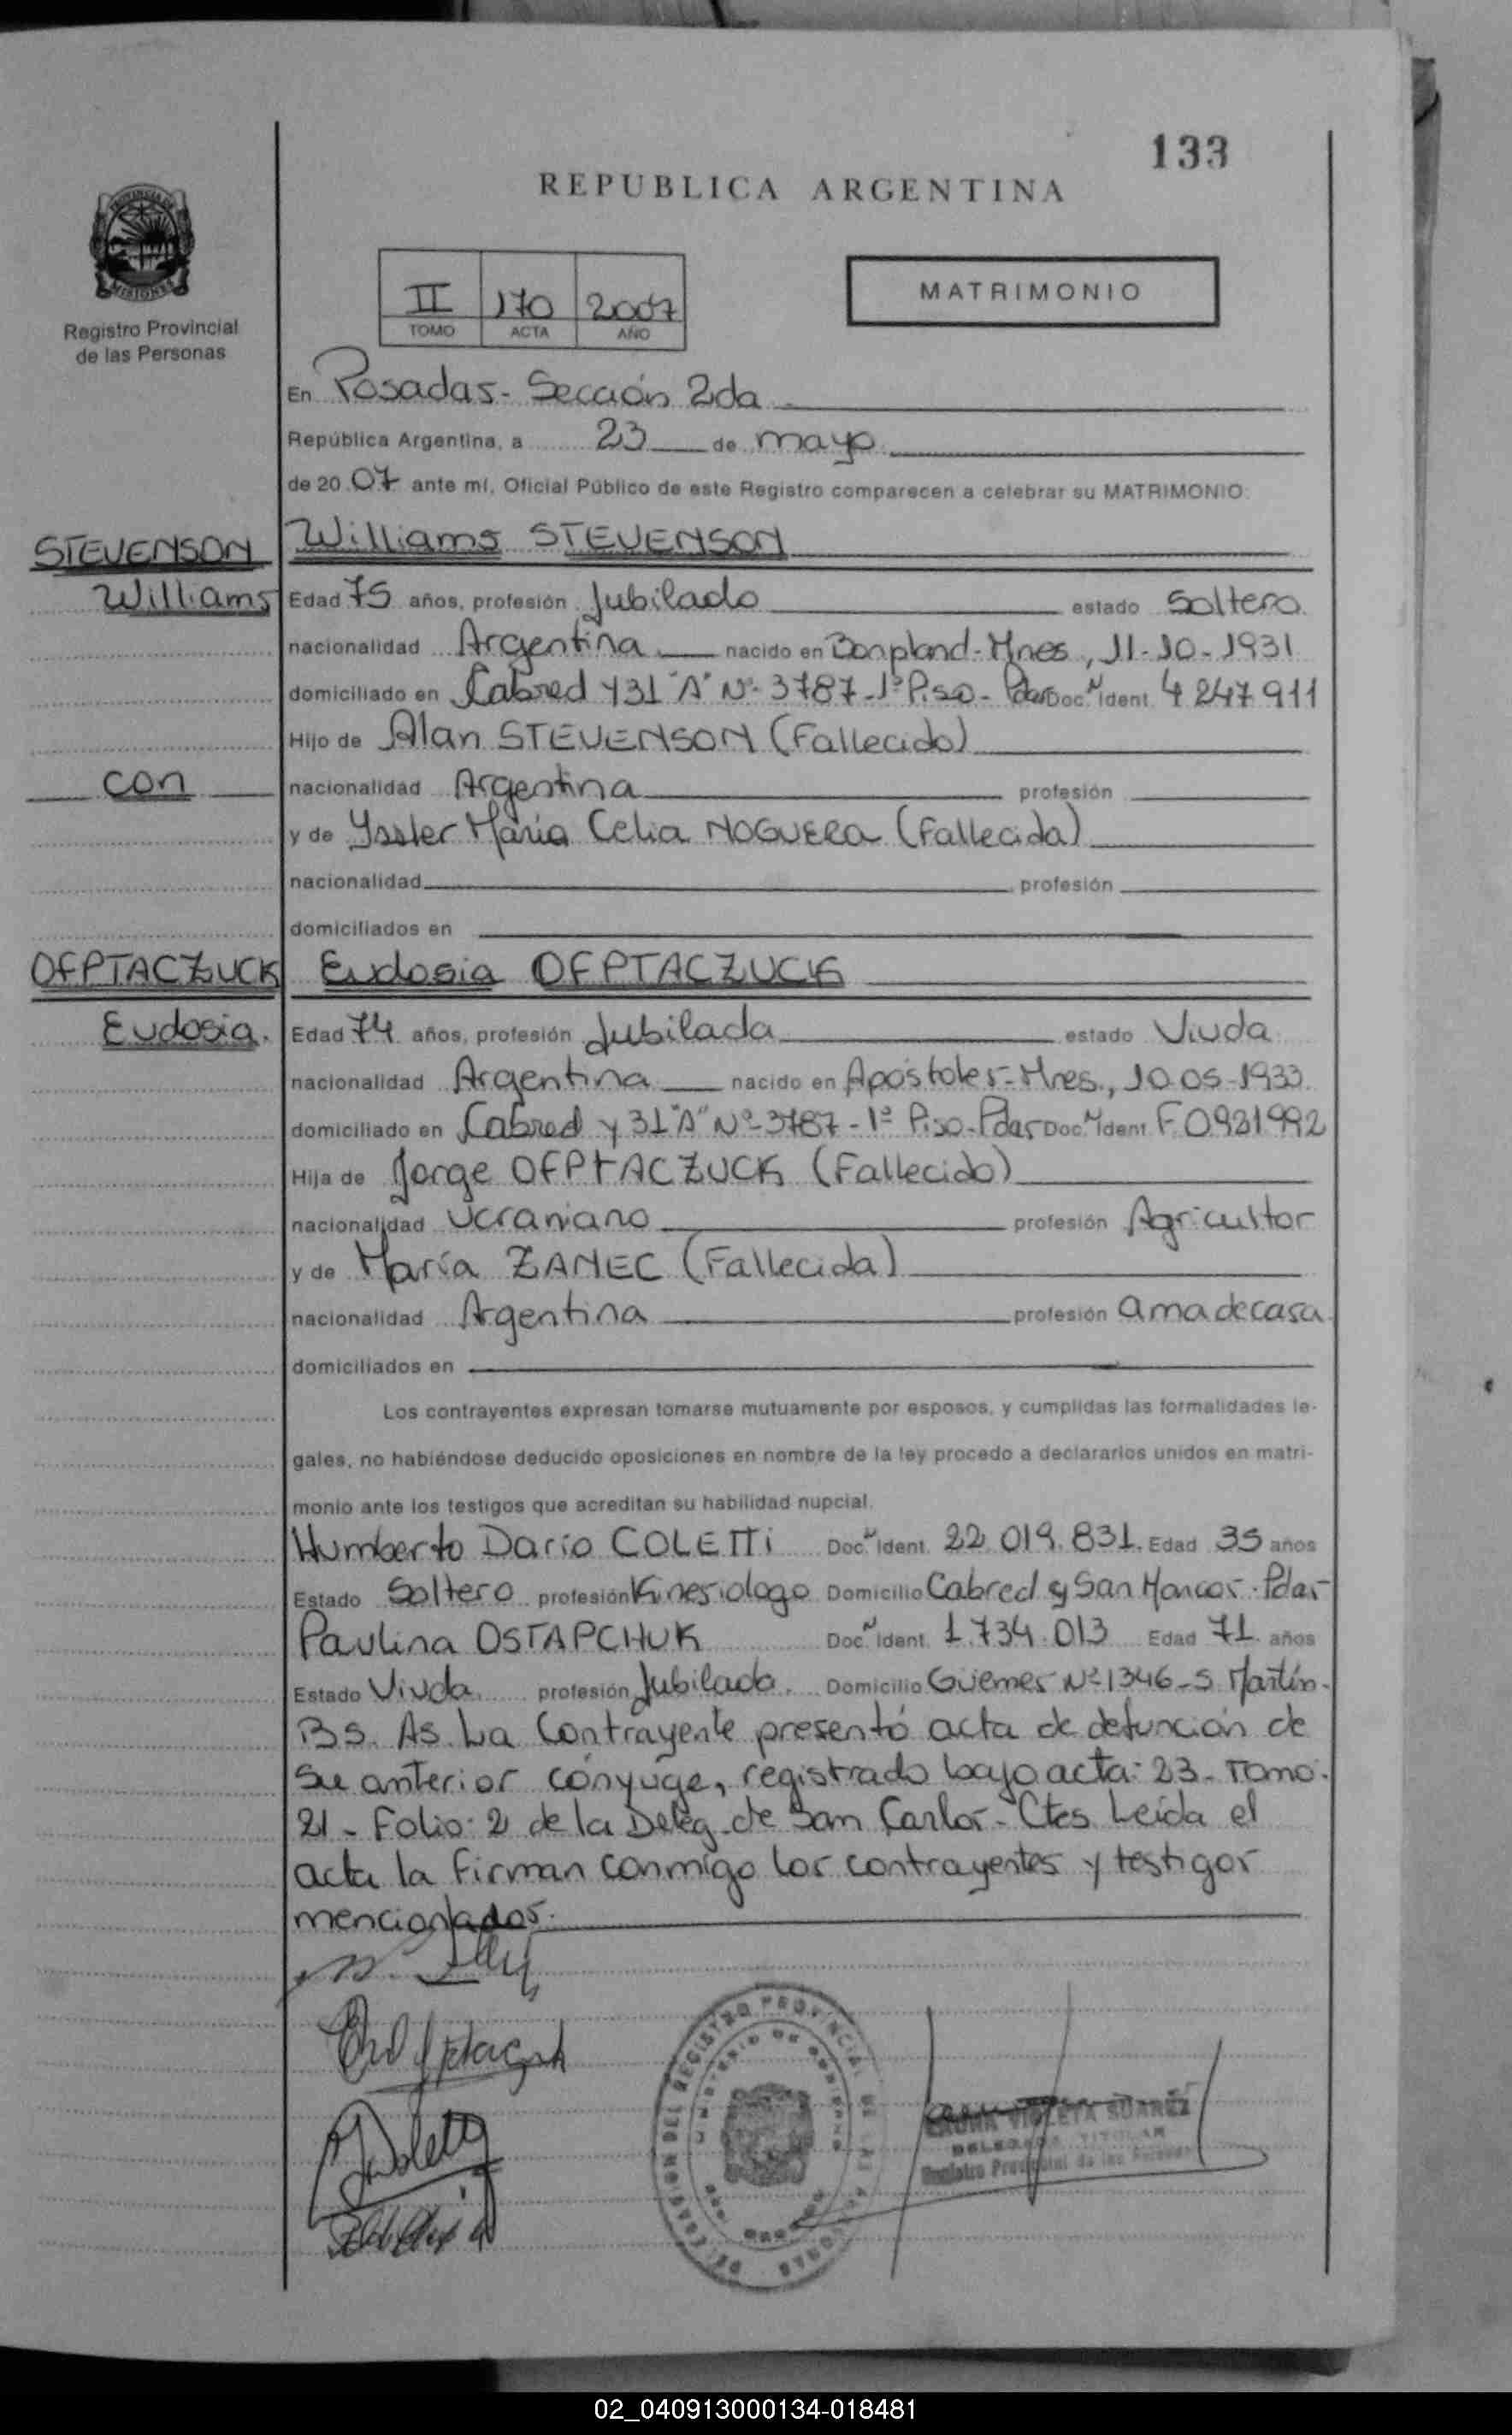 133
REPUBLICA ARGENTINA
PROVINCIA DE
MISIONES
Registro Provincial
de las Personas
II 170 2007
TOMO ACTA AÑO
MATRIMONIO
En Posadas - Sección 2da
República Argentina, a 23 de mayo
de 2007 ante mí, Oficial Público de este Registro comparecen a celebrar su MATRIMONIO:
STEVENSON Williams STEVENSON
Williams Edad 75 años, profesión Jubilado estado Soltero
nacionalidad Argentina nacido en Bonpland - Mnes, 11-10-1931
domiciliado en Cabred y 31 "A" Nº 3787 - 1º Piso - Pdas Doc. N Ident. 4 247 911
Hijo de Alan STEVENSON (Fallecido)
con nacionalidad Argentina profesión
y de María Celia NOGUERA (Fallecida)
nacionalidad profesión
domiciliados en
OFPTACZUCK Eudosia OFPTACZUCK
Eudosia. Edad 74 años, profesión Jubilada estado Viuda
nacionalidad Argentina nacido en Apóstoles - Mnes., 10-05-1933
domiciliado en Cabred y 31 "A" Nº 3787 - 1º Piso - Pdas Doc. N Ident. F 0.921992
Hija de Jorge OFPTACZUCK (Fallecido)
nacionalidad Ucraniano profesión Agricultor
y de María ZANEC (Fallecida)
nacionalidad Argentina profesión ama de casa
domiciliados en
Los contrayentes expresan tomarse mutuamente por esposos, y cumplidas las formalidades le-
gales, no habiéndose deducido oposiciones en nombre de la ley procedo a declararlos unidos en matri-
monio ante los testigos que acreditan su habilidad nupcial.
Humberto Darío COLETTi Doc. N Ident. 22.019.831. Edad 35 años
Estado Soltero profesión Kinesiologo Domicilio Cabred y San Marcos - Pdas
Paulina OSTAPCHUK Doc. N Ident. 1.734.013 Edad 71 años
Estado Viuda profesión Jubilada. Domicilio Güemes Nº 1346 - S. Martín -
BS. As. La Contrayente presentó acta de defunción de
su anterior cónyuge, registrado bajo acta: 23 - Tomo:
21 - Folio: 2 de la Deleg. de San Carlos - Ctes Leída el
acta la firman conmigo los contrayentes y testigos
mencionados.
VIOLETA SUAREZ
DELEGADA TITULAR
Registro Provincial de las Personas
02_040913000134-018481